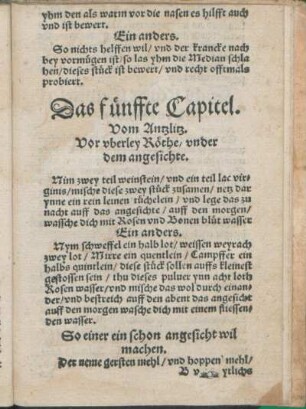 yhm den als warm vor die nasen es hilfft auch
vnd ist bewert.
Ein anders.
So nichts helffen wil/ vnd der krancke nach
bey vormügen ist/ so las yhm die Median schla
hen/dieses stück ist bewert/ vnd recht offtmals
probiert.
Das fünffte Capitel.
Vom Antzlitz.
Vor vberley Röthe/ vnder
dem angesichte.
Nim zwey teil weinstein/ vnd ein teil lac vir
ginis/mische diese zwey stück zusamen/ netz dar
ynne ein rein leinen tüchelein/ vnd lege das zu
nacht auff das angesichte/ auff den morgen/
wassche dich mit Rosen vnd Bonen blüt wasser
Ein anders.
Nym schweffel ein halb lot/ weissen weyrach
zwey lot/ Mirre ein quentlein/ Campffer ein
halbs quintlein/ diese stück sollen auffs kleinest
gestossen sein/ thu dieses puluer ynn acht loth
Rosen wasser/vnd mische das wol durch einan
der/vnd bestreich auff den abent das angesicht
auff den morgen wasche dich mit einem fliessen
den wasser.
So einer ein schon angesicht wil
machen.
Der neme gersten mehl/ vnd boppen mehl/
B v ytlichs